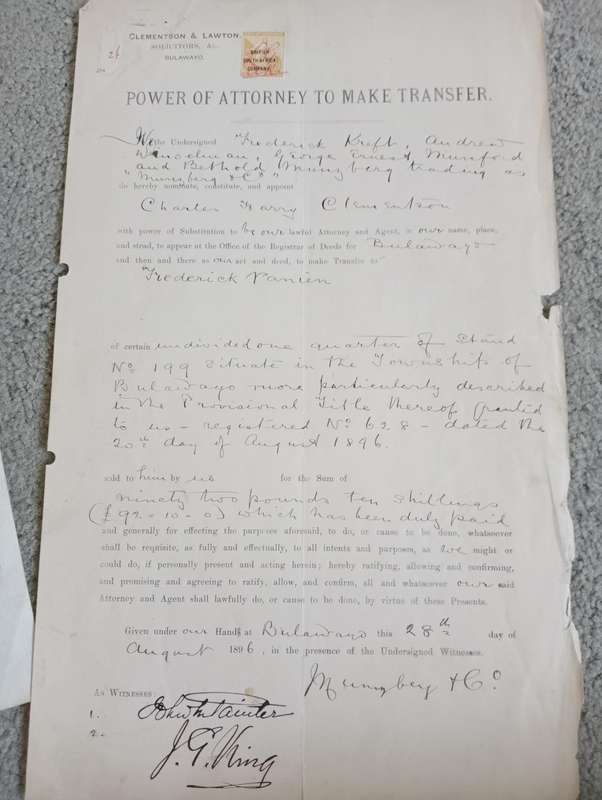 CLEMENTSON & LAWTON,
SOLICITORS, &c.
BULAWAYO.
BRITISH
SOUTH AFRICA
COMPANY.
POWER OF ATTORNEY TO MAKE TRANSFER.
We the Undersigned Frederick Kreft, Andrew
George Ernest Mumford
and Bethold Munzberg trading as
"Munzberg & Co"
do hereby nominate, constitute, and appoint
Charles Harry Clementson
with power of Substitution to be our lawful Attorney and Agent, in our name, place,
and stead, to appear at the Office of the Registrar of Deeds for Bulawayo
and then and there as our act and deed, to make Transfer to
Frederick
of certain undivided one quarter of Stand
No 199 situate in the Township of
Bulawayo more particularly described
in the Provisional Title thereof granted
to us - registered No 628 - dated the
20th day of August 1896.
sold to him by us for the Sum of
ninety two pounds ten shillings
(£92-10-0) which has been duly paid
and generally for effecting the purposes aforesaid, to do, or cause to be done, whatsoever
shall be requisite, as fully and effectually, to all intents and purposes, as we might or
could do, if personally present and acting herein; hereby ratifying, allowing and confirming,
and promising and agreeing to ratify, allow, and confirm, all and whatsoever our said
Attorney and Agent shall lawfully do, or cause to be done, by virtue of these Presents.
Given under our Hands at Bulawayo this 28th day of
August 1896, in the presence of the Undersigned Witnesses.
Munzberg & Co
AS WITNESSES:
1.
2. J. G. King